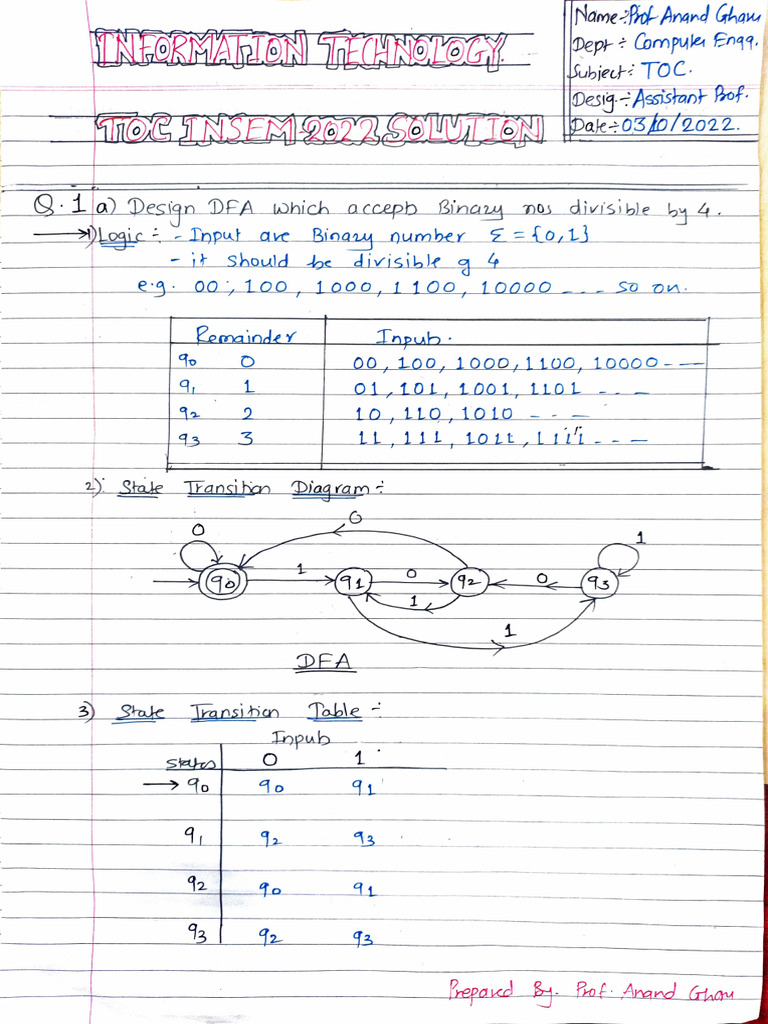 INFORMATION TECHNOLOGY.
TOC INSEM-2022 SOLUTION
Name:- Prof Anand Gharu
Dept ÷ Computer Engg.
Subject: TOC.
Desig:- Assistant Prof.
Date÷03/10/2022.
Q.1 a) Design DFA which accepts Binary nos divisible by 4.
→ 1) Logic ÷ - Input are Binary number Σ = {0,1}
- it should be divisible g 4
e.g. 00, 100, 1000, 1100, 10000 --- so on.
Remainder Inputs.
q0 0 00, 100, 1000, 1100, 10000 ---
q1 1 01, 101, 1001, 1101 ---
q2 2 10, 110, 1010 ---
q3 3 11, 111, 1011, 1111 ---
2) State Transition Diagram ÷
0 0 1
q0 1 q1 0 q2 0 q3
1
1
DFA
3) State Transition Table ÷
Inputs
States 0 1
→ q0 q0 q1
q1 q2 q3
q2 q0 q1
q3 q2 q3
Prepared By. Prof. Anand Gharu